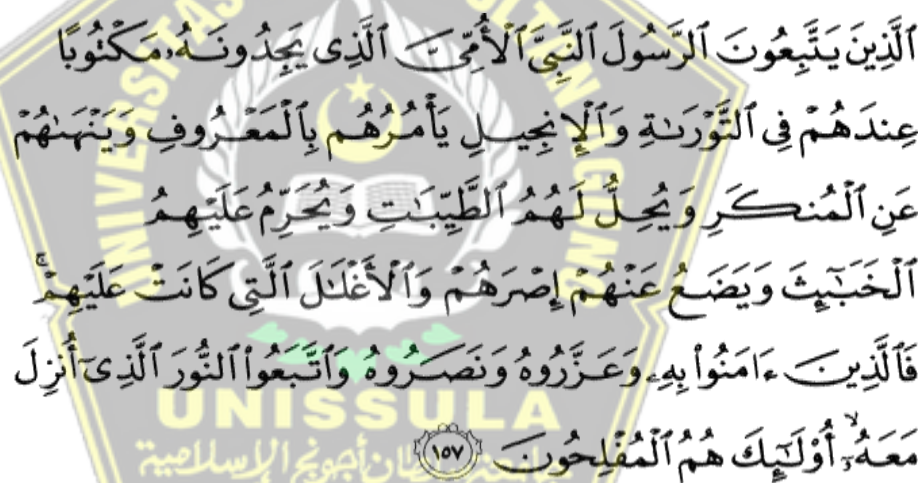 ٱلَّذِينَ يَتَّبِعُونَ ٱلرَّسُولَ ٱلنَّبِىَّ ٱلْأُمِّىَّ ٱلَّذِى يَجِدُونَهُۥ مَكْتُوبًا
عِندَهُمْ فِى ٱلتَّوْرَىٰةِ وَٱلْإِنجِيلِ يَأْمُرُهُم بِٱلْمَعْرُوفِ وَيَنْهَىٰهُمْ
عَنِ ٱلْمُنكَرِ وَيُحِلُّ لَهُمُ ٱلطَّيِّبَـٰتِ وَيُحَرِّمُ عَلَيْهِمُ
ٱلْخَبَـٰٓئِثَ وَيَضَعُ عَنْهُمْ إِصْرَهُمْ وَٱلْأَغْلَـٰلَ ٱلَّتِى كَانَتْ عَلَيْهِمْ ۚ
فَٱلَّذِينَ ءَامَنُوا۟ بِهِۦ وَعَزَّرُوهُ وَنَصَرُوهُ وَٱتَّبَعُوا۟ ٱلنُّورَ ٱلَّذِىٓ أُنزِلَ
مَعَهُۥٓ ۙ أُو۟لَـٰٓئِكَ هُمُ ٱلْمُفْلِحُونَ ١٥٧
UNISSULA
الإسلامية